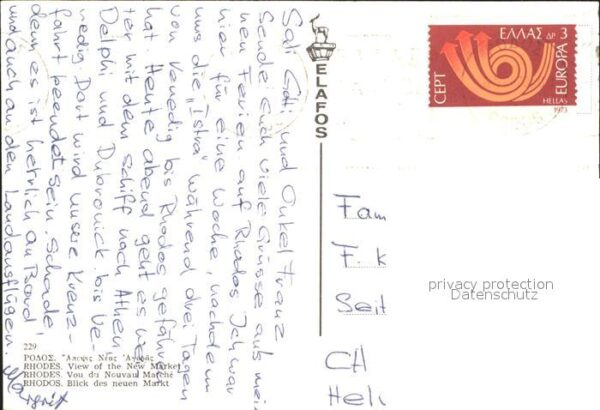 Sali Gotti und Onkel Franz
Sende Euch viele Grüsse aus mei-
nen Ferien auf Rhodos. Ich war
hier für eine Woche, nachdem
uns die "Istra" während drei Tagen
von Venedig bis Rhodos geführt
hat. Heute abend geht es wei-
ter mit dem Schiff nach Athen,
Delphi und Dubrovnick bis Ve-
nedig. Dort wird unsere Kreuz-
fahrt beendet sein. Schade,
denn es ist herrlich an Bord
und auch an den Landausflügen.
Margrit
ELAFOS
ΕΛΛΑΣ ΔΡ 3
CEPT
EUROPA
HELLAS
1973
Fam
F. k
Seit
CH
Hel
privacy protection
Datenschutz
229
ΡΟΔΟΣ. Ἄποψις Νέας Ἀγορᾶς
RHODES. View of the New Market
RHODES. Vou du Nouvau Marché
RHODOS. Blick des neuen Markt